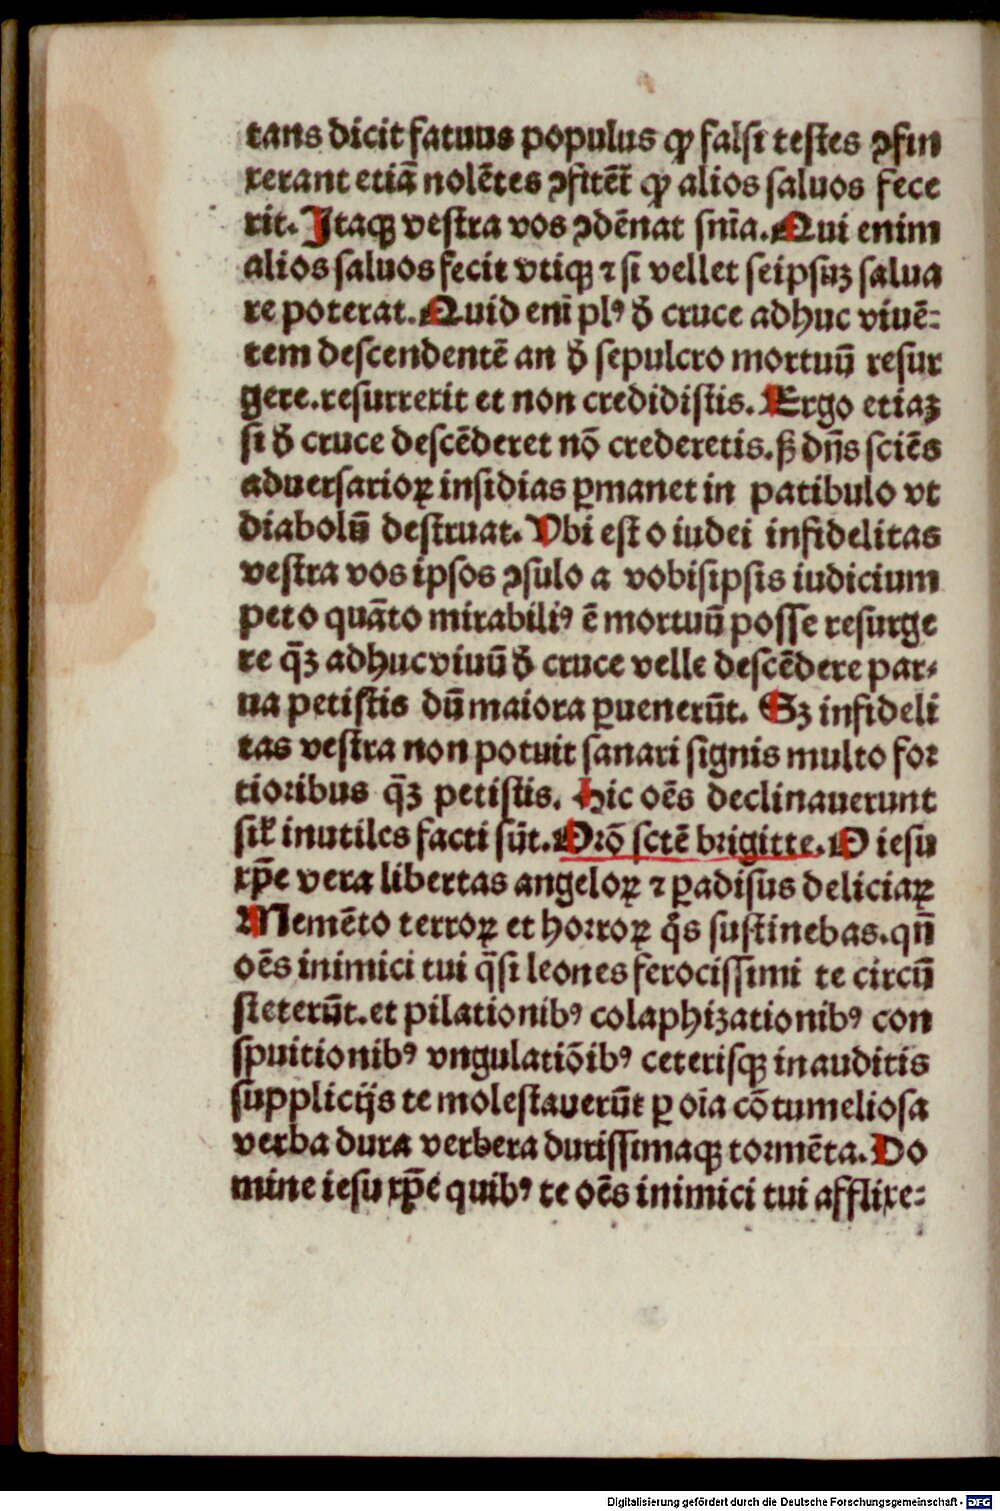 tans dicit fatuus populus ꝙ falsi testes ꝯfin
xerant etiã nolẽtes ꝯfitẽt᷑ ꝙ alios saluos fece
rit. Itaqꝫ vestra vos ꝯdẽnat sñia. Qui enim
alios saluos fecit vtiqꝫ ⁊ si vellet seipsuꝫ salua
re poterat. Quid eni᷑ plꝰ đ cruce adhuc viuẽ-
tem descendentẽ an đ sepulcro mortuũ resur
gere. resurrexit et non credidistis. Ergo etiaꝫ
si đ cruce descẽderet nõ crederetis. ꝭꝫ dñs sciẽs
aduersarioꝝ insidias ꝑmanet in patibulo vt
diabolũ destruat. Vbi est o iudei infidelitas
vestra vos ipsos ꝯsulo a vobisipsis iudicium
peto quãto mirabiliꝰ ẽ mortuũ posse resurge
re q̃ꝫ adhuc viuũ đ cruce velle descẽdere par-
ua petistis dũ maiora ꝓuenerũt. Sꝫ infideli
tas vestra non potuit sanari signis multo for
tioribus q̃ꝫ petistis. Hic oẽs declinauerunt
sil᷑ inutiles facti sũt. Orõ sctẽ brigitte. O iesu
xp̃e vera libertas angeloꝝ ⁊ ꝑadisus deliciaꝝ
Memẽto terroꝝ et horroꝝ q̃s sustinebas. qñ
oẽs inimici tui q̃si leones ferocissimi te circũ
steterũt. et pilationibꝰ colaphizationibꝰ con
spuitionibꝰ vngulatiõibꝰ ceterisqꝫ inauditis
supplicijs te molestauerũt ꝑ oĩa cõtumeliosa
verba dura verbera durissimaqꝫ tormẽta. Do
mine iesu xp̃e quibꝰ te oẽs inimici tui afflixe-
Digitalisierung gefördert durch die Deutsche Forschungsgemeinschaft - DFG